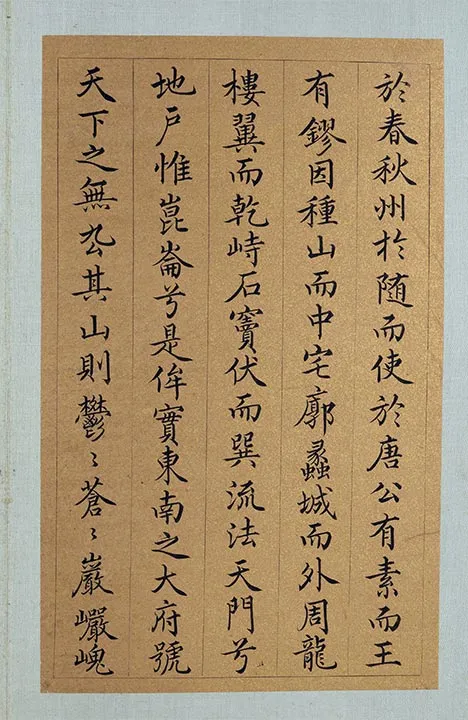 於春秋州扵随而使於唐公有素而王
有鏐因種山而中宅廓蠡城而外周龍
樓翼而乾峙石竇伏而巽流法天門兮
地户惟崑崙兮是侔實東南之大府號
天下之無厹其山則鬱〻蒼〻巖巗嵬